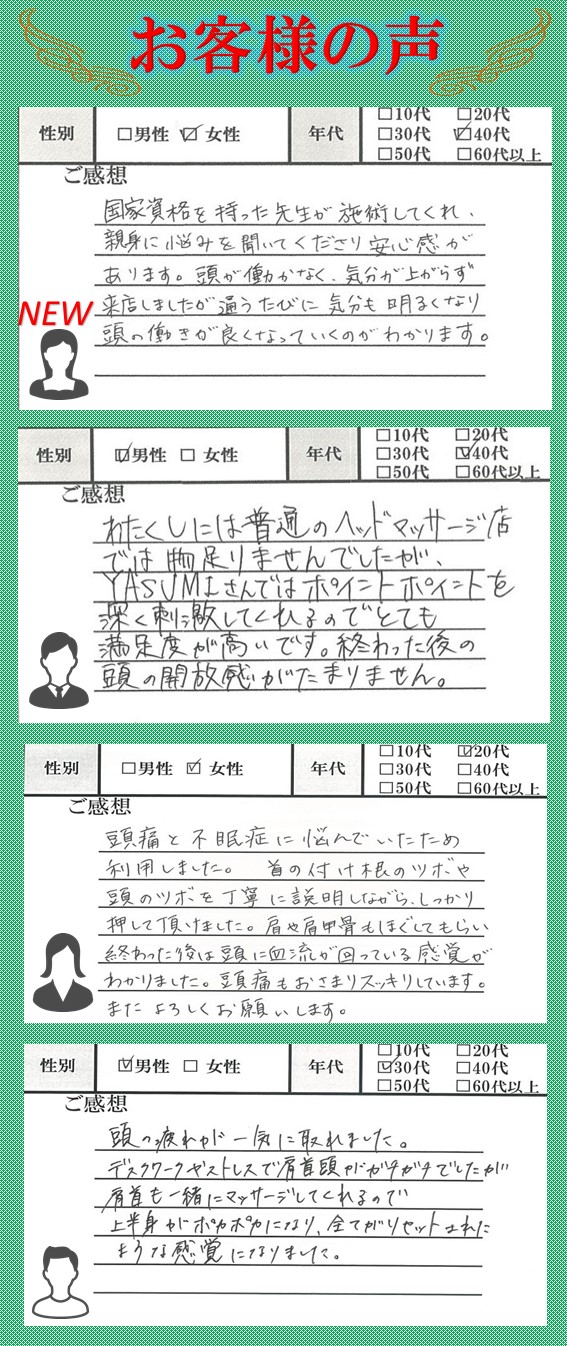 お客様の声
性別 □男性 ☑女性 年代 □10代 □20代
□30代 ☑40代
□50代 □60代以上
ご感想
国家資格を持った先生が施術してくれ、
親身に悩みを聞いてくださり安心感が
あります。頭が働かなく、気分が上がらず
来店しましたが通うたびに気分も明るくなり
頭の働きが良くなっていくのがわかります。
NEW
性別 ☑男性 □女性 年代 □10代 □20代
□30代 ☑40代
□50代 □60代以上
ご感想
わたくしには普通のヘッドマッサージ店
では物足りませんでしたが、
YASUMIさんではポイントポイントを
深く刺激してくれるのでとても
満足度が高いです。終わった後の
頭の開放感がたまりません。
性別 □男性 ☑女性 年代 □10代 ☑20代
□30代 □40代
□50代 □60代以上
ご感想
頭痛と不眠症に悩んでいたため
利用しました。 首の付け根のツボや
頭のツボを丁寧に説明しながら、しっかり
押して頂けました。肩や肩甲骨もほぐしてもらい
終わった後は頭に血流が回っている感覚が
わかりました。頭痛もおさまりスッキリしています。
またよろしくお願いします。
性別 ☑男性 □女性 年代 □10代 □20代
☑30代 □40代
□50代 □60代以上
ご感想
頭の疲れが一気に取れました。
デスクワークやストレスで肩首頭がガチガチでしたが
肩首も一緒にマッサージしてくれるので
上半身がポカポカになり、全てがリセットされた
ような感覚になりました。